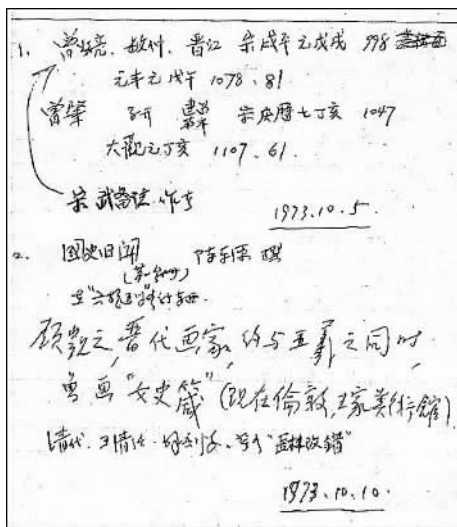 1. 曾公亮. 敏仲. 晋江 宋咸平元戊戌 998
元丰元戊午 1078. 81
曾肇 子开 建昌南丰 宋庆曆七丁亥 1047
大觀元丁亥 1107. 61
宋 武备志 作者
1973.10.5.
2. 国史旧闻 陈登原 撰
(第一分册)
顾愷之, 晋代画家, 约与王羲之同时,
曾画"女史箴" (现在倫敦, 王家美術館)
清代. 王清任. 
1973.10.10.